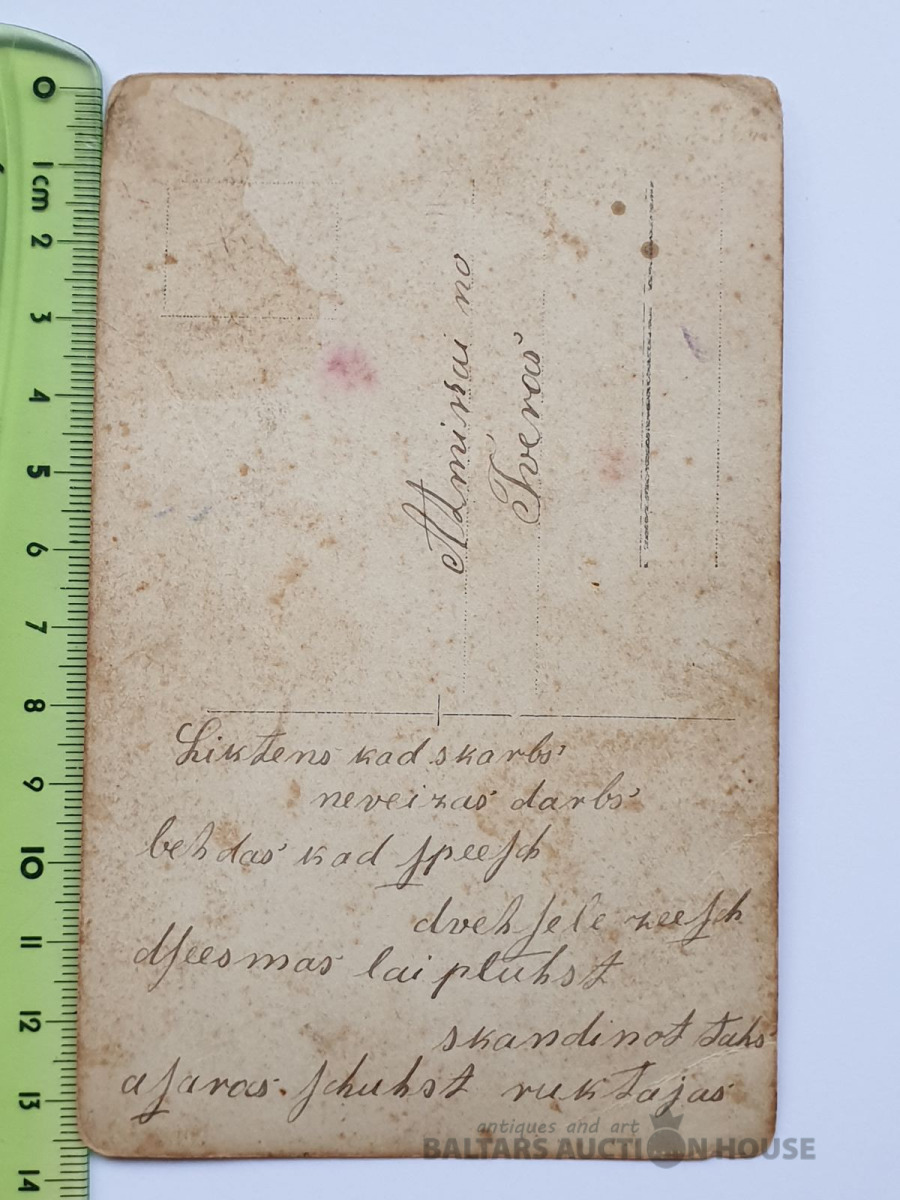 Atmiņai no
Tveras
Liktens kad skarbs
neveizas darbs
behdas kad speesch
dvehsele zeesch
dseesmas lai pluhst
skandinot tahs
asaras schuhst ruktajas
0
1 cm
2
3
4
5
6
7
8
9
10
11
12
13
14
antiques and art
BALTARS AUCTION HOUSE